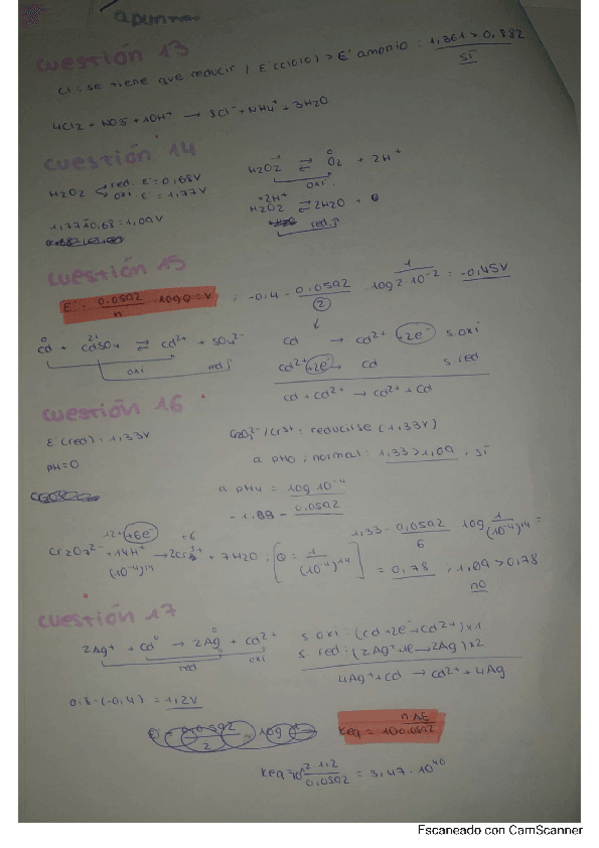 apuntes
cuestión 13
Cl: se tiene que reducir / E°(cloro) > E° amonio : 1,361 > 0,882
sí
4Cl2 + NO3 + 10H+ → 8Cl- + NH4+ + 3H2O
cuestión 14
H2O2 red. E° = 0,68V
oxi. E° = 1,77V
H2O2 ⇄ O2 + 2H+
oxi
1,77-0,68 = 1,09V
+2H+
H2O2 ⇄ 2H2O +
red.
cuestión 15
E° - 0,0592/n · log Q = V ; -0,4 - 0,0592/2 · log 1/2·10^-2 = -0,45V
Cd + CdSO4 ⇄ Cd2+ + SO4^2-
oxi
red
Cd → Cd2+ +2e- s. oxi
Cd2+ +2e- → Cd s. red
Cd + Cd2+ → Cd2+ + Cd
cuestión 16
E°(red) = 1,33V
pH=0
Cr2O7^2-/Cr3+ : reducirse (1,33V)
a pH0, normal: 1,33 > 1,09 ; sí
a pH4 = log 10^-4
-1.88 - 0,0592
12+ +6e- +6
Cr2O7^2- + 14H+ → 2Cr3+ + 7H2O ; [Q = 1/(10^-4)^14]
(10^-4)14
1,33 - 0,0592/6 log 1/(10^-4)^14 =
= 0,78 , 1,09 > 0,78
no
cuestión 17
2Ag+ + Cd° → 2Ag + Cd2+
red oxi
s. oxi: (Cd +2e- → Cd2+)x1
s. red: (2Ag+ +1e → 2Ag)x2
4Ag+ + Cd → Cd2+ + 4Ag
0.8-(-0,4) = 1,2V
Keq = 10^(nΔE/0,0592)
Keq = 10^(2·1,2/0,0592) = 3,47·10^40
Escaneado con CamScanner